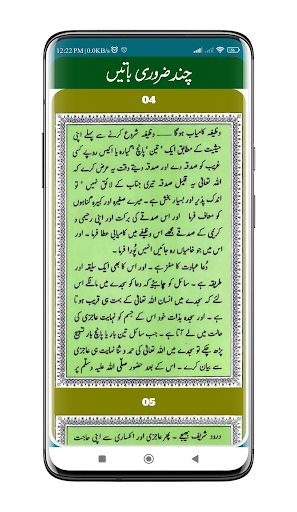 12:22 PM | 0.0KB/s
چند ضروری باتیں
04
وظیفہ کامیاب ہوگا ـــــ وظیفہ شروع کرنے سے پہلے اپنی
حیثیت کے مطابق ایک ' تین ' پانچ ' گیارہ یا اکیس روپے کسی
غریب کو صدقہ دے اور صدقہ دیتے وقت یہ عرض کرے کہ
اللہ تعالیٰ یہ قلیل صدقہ تیری جناب کے لائق نہیں ' تو
اندک پذیر اور بسیار بخش ہے۔ میرے صغیرہ اور کبیرہ گناہوں
کو معاف فرما اور اس صدقے کی برکت اور اپنی رحیمی و
کریمی کے صدقے مجھے اس وظیفے میں کامیابی عطا فرما ۔ اور
اس میں جو خامیاں رہ جائیں انہیں پورا فرما ۔
دُعا عبادت کا مغز ہے ۔ اور اس کا بھی ایک سلیقہ اور
طریقہ ہے ۔ سائل کو چاہئے کہ دعا سجدے میں مانگے اس
لئے کہ سجدے میں انسان اللہ تعالیٰ کے بہت ہی قریب ہوتا
ہے ۔ اور سجدہ بذات خود اس کے جسم کو نہایت عاجزی کی
حالت میں لے آتا ہے ۔ جب سائل تین بار یا پانچ بار تسبیح
پڑھ چکے تو سجدے میں ہی اللہ تعالیٰ کی حمد و ثنا نہایت ہی عاجزی
سے بیان کرے ۔ اس کے بعد حضور صلی اللہ علیہ وسلم پر
05
درود شریف بھیجے ۔ پھر عاجزی اور انکساری سے اپنی حاجت